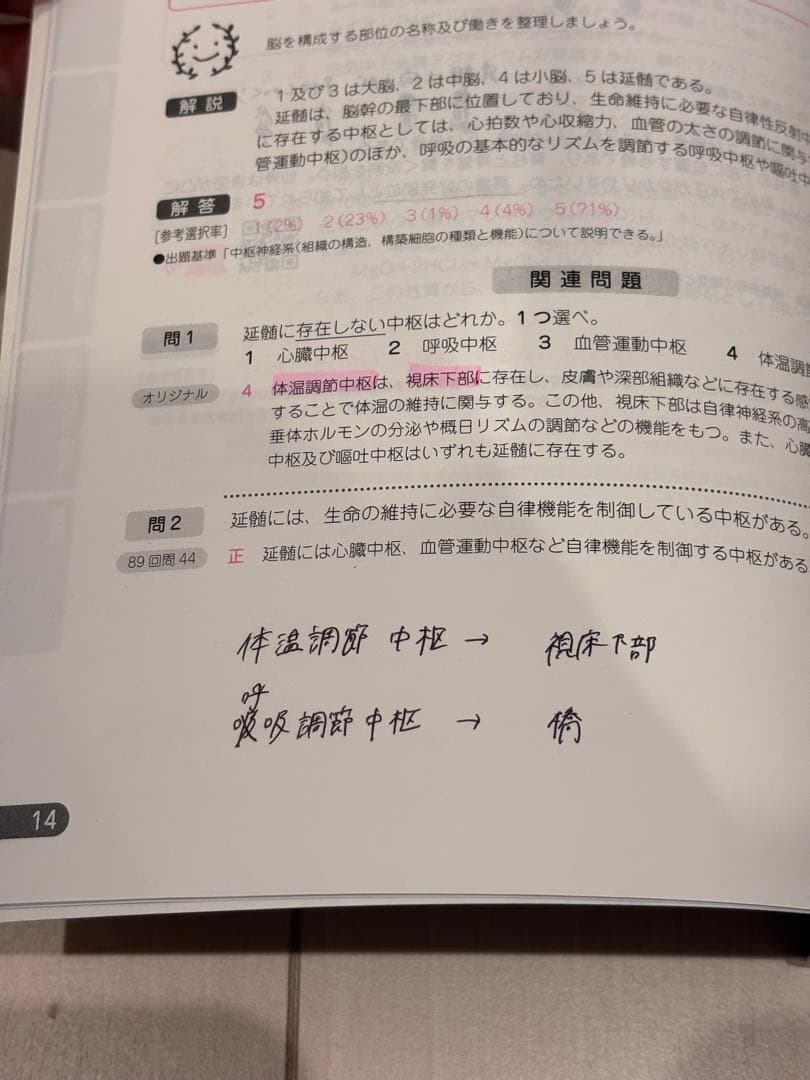 脳を構成する部位の名称及び働きを整理しましょう。
解説
1及び3は大脳、2は中脳、4は小脳、5は延髄である。
延髄は、脳幹の最下部に位置しており、生命維持に必要な自律性反射中
に存在する中枢としては、心拍数や心収縮力、血管の太さの調節に関与
管運動中枢)のほか、呼吸の基本的なリズムを調節する呼吸中枢や嘔吐中
解答 5
[参考選択率] 1(2%) 2(23%) 3(1%) 4(4%) 5(71%)
●出題基準「中枢神経系(組織の構造、構築細胞の種類と機能)について説明できる。」
関連問題
問1 延髄に存在しない中枢はどれか。1つ選べ。
1 心臓中枢 2 呼吸中枢 3 血管運動中枢 4 体温調節
オリジナル 4 体温調節中枢は、視床下部に存在し、皮膚や深部組織などに存在する感
することで体温の維持に関与する。この他、視床下部は自律神経系の高
垂体ホルモンの分泌や概日リズムの調節などの機能をもつ。また、心臓
中枢及び嘔吐中枢はいずれも延髄に存在する。
問2 延髄には、生命の維持に必要な自律機能を制御している中枢がある。
89回問44 正 延髄には心臓中枢、血管運動中枢など自律機能を制御する中枢がある
体温調節中枢 → 視床下部
呼
吸調節中枢 → 橋
14